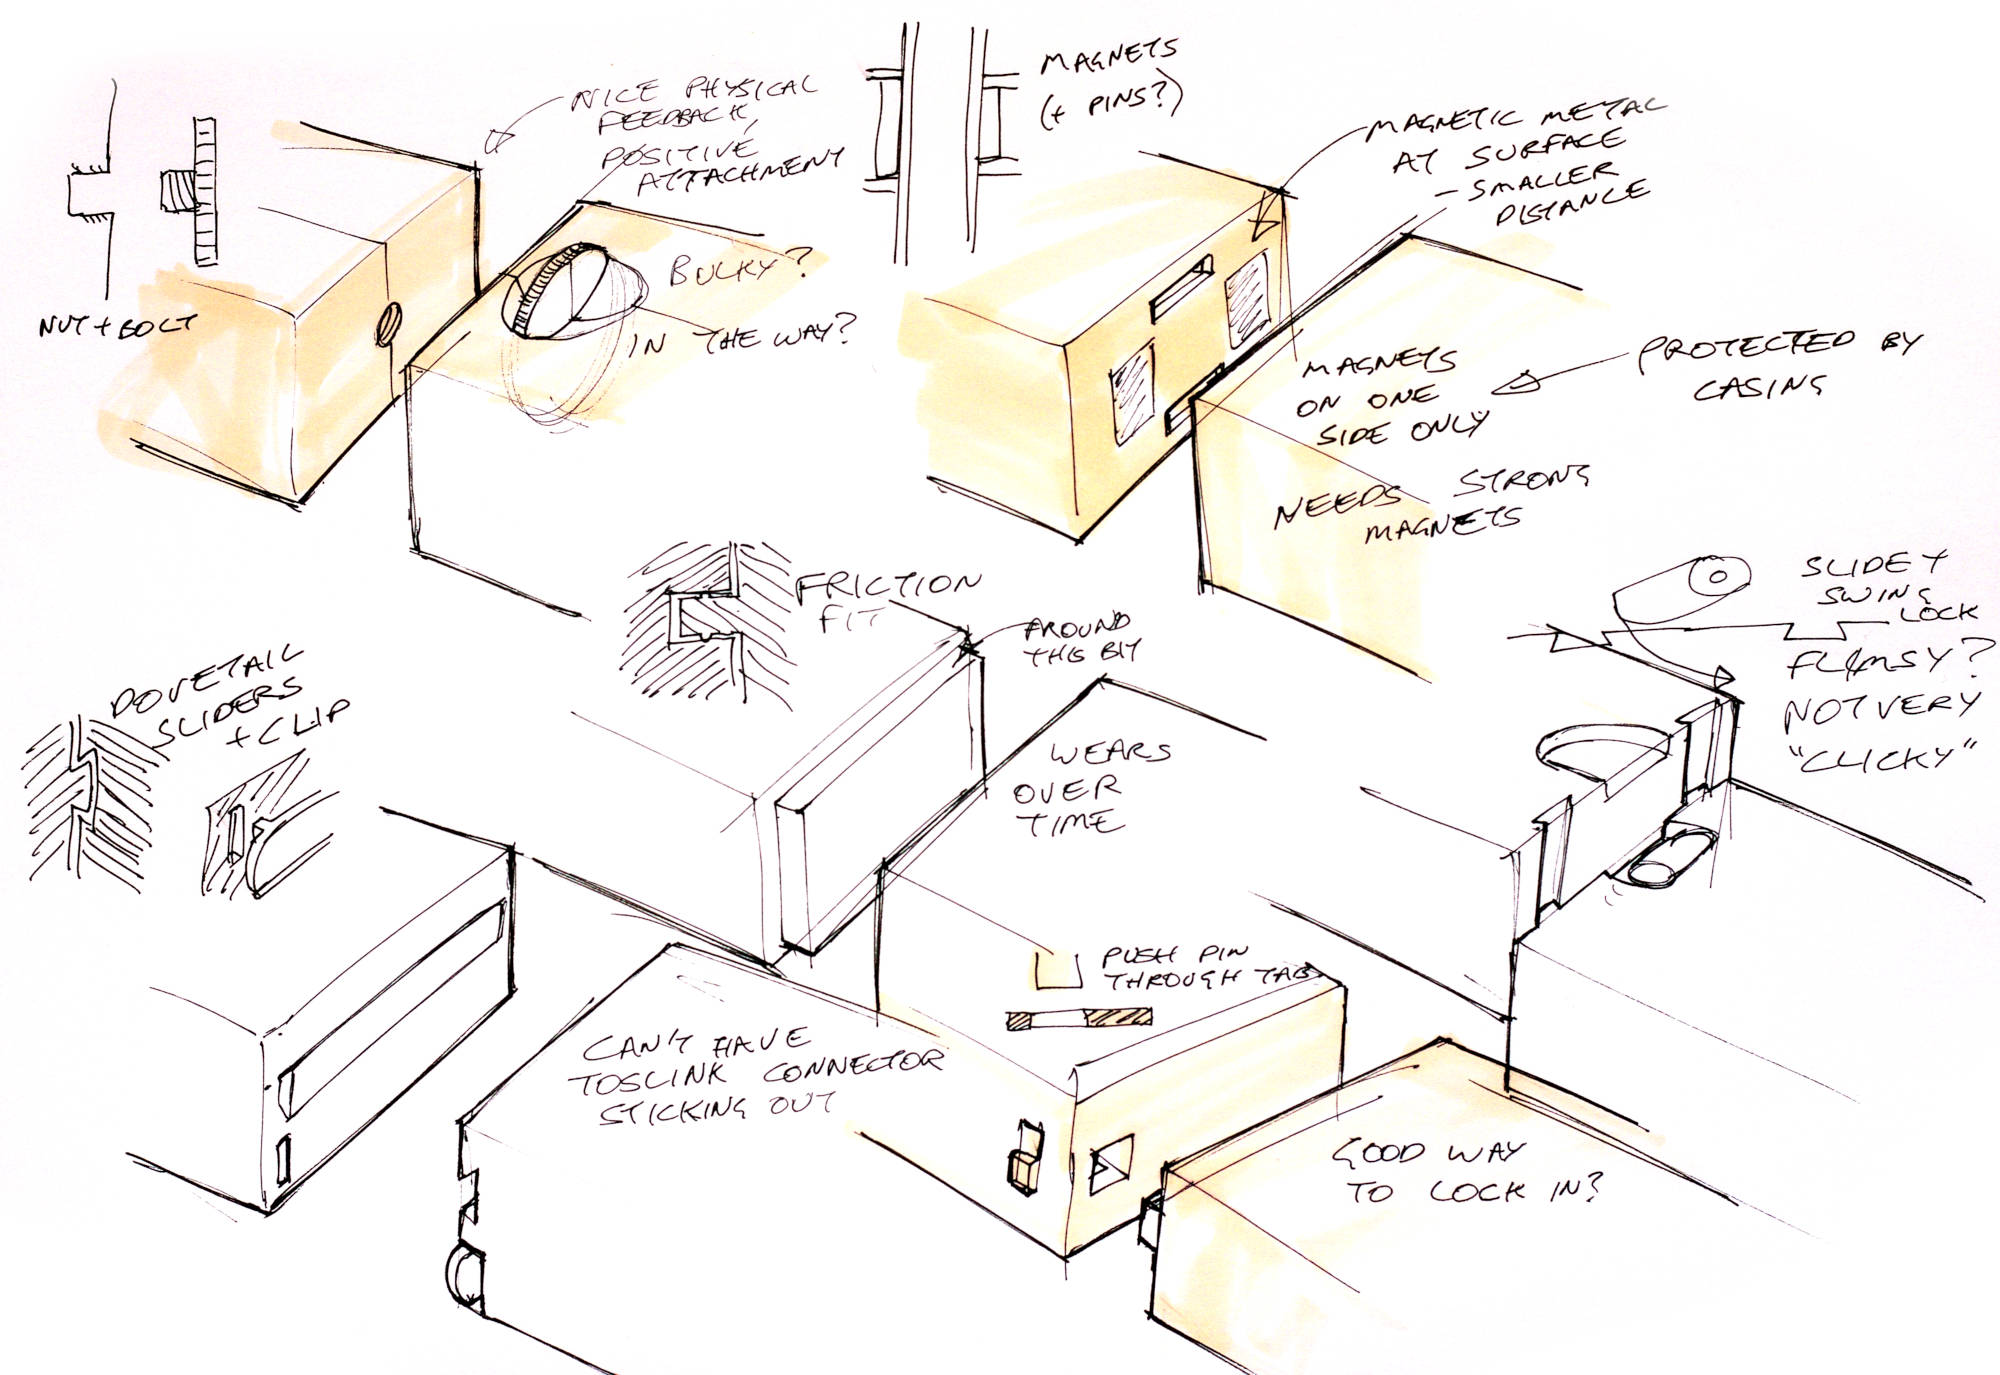 NICE PHYSICAL
FEEDBACK,
POSITIVE
ATTACHMENT
NUT + BOLT
BULKY?
IN THE WAY?
MAGNETS
(+ PINS?)
MAGNETIC METAL
AT SURFACE
- SMALLER
DISTANCE
MAGNETS
ON ONE
SIDE ONLY
PROTECTED BY
CASING
NEEDS STRONG
MAGNETS
FRICTION
FIT
AROUND
THIS BIT
WEARS
OVER
TIME
SLIDE +
SWING
LOCK
FLIMSY?
NOT VERY
"CLICKY"
DOVETAIL
SLIDERS
+ CLIP
CAN'T HAVE
TOSLINK CONNECTOR
STICKING OUT
PUSH PIN
THROUGH TAB
GOOD WAY
TO LOCK IN?